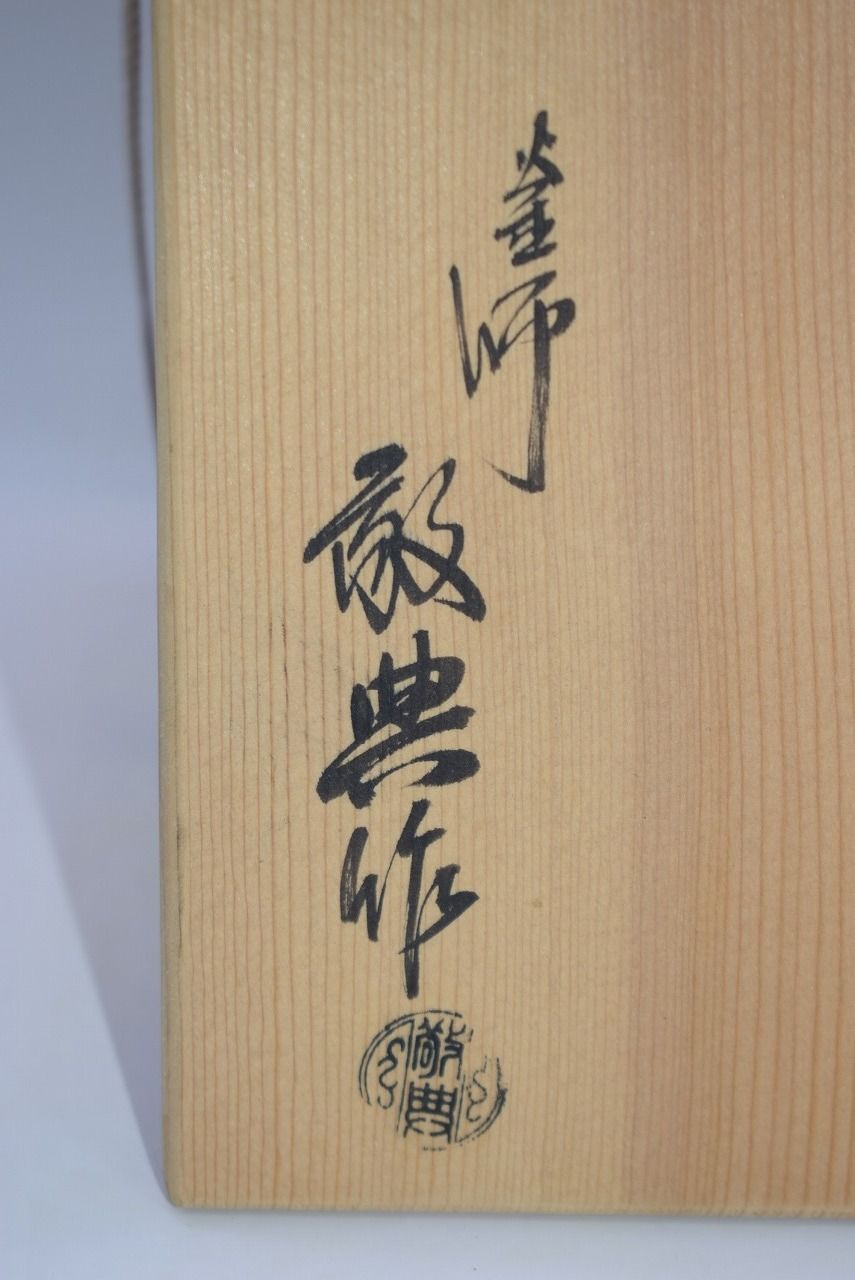 釜師
敬典作
敬典